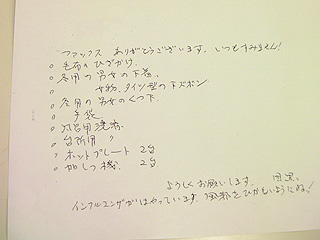 ファックス ありがとうございます。いつもすみません!
○ 毛布のひざかけ。
○ 冬用の男女の下着。
女物、タイツ型の下ズボン
○ 冬用の男女のくつ下。
○ 手袋
○ 風呂用洗剤
○ 台所用 〃
○ ホットプレート 2台
○ 加しつ機。 2台
ようしくお願いします。
インフルエンザがはやっています。風邪をひかないようにね!